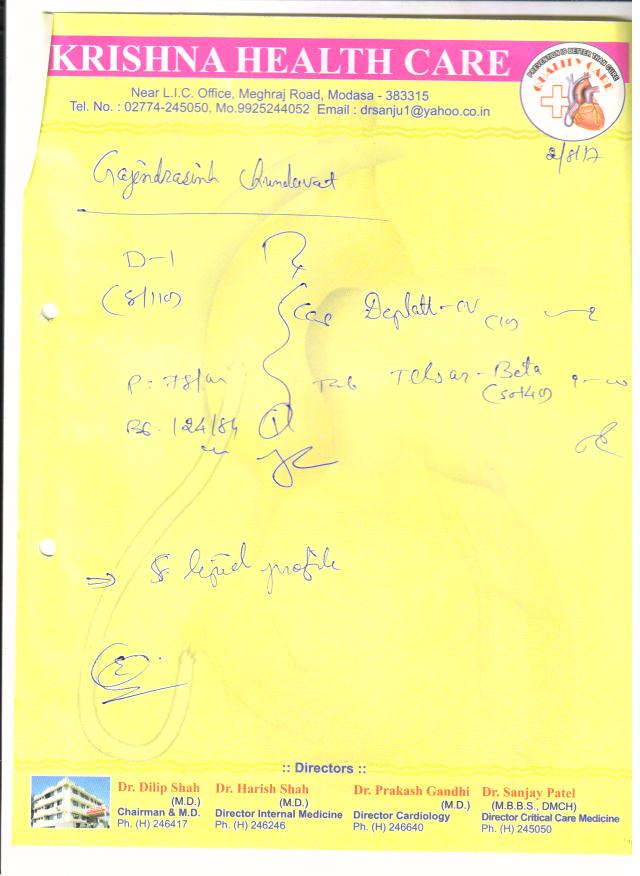 KRISHNA HEALTH CARE
PREVENTION IS BETTER THAN CURE
QUALITY CARE
Near L.I.C. Office, Meghraj Road, Modasa - 383315
Tel. No. : 02774-245050, Mo.9925244052 Email : drsanju1@yahoo.co.in
2/8/17
Gajendrasinh Chundavat
D-1
Rx
(8/110)
Cap Deplatt-CV (10)
P: 78/m
Tab Telsar-Beta
(50+40)
BP. 124/84
⇒ S. lipid profile
:: Directors ::
Dr. Dilip Shah
(M.D.)
Chairman & M.D.
Ph. (H) 246417
Dr. Harish Shah
(M.D.)
Director Internal Medicine
Ph. (H) 246246
Dr. Prakash Gandhi
(M.D.)
Director Cardiology
Ph. (H) 246640
Dr. Sanjay Patel
(M.B.B.S., DMCH)
Director Critical Care Medicine
Ph. (H) 245050